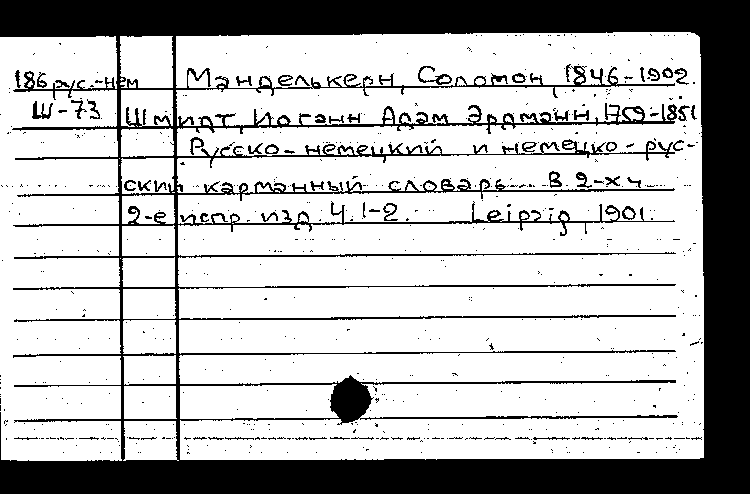 186 рус.-нем Манделькерн, Соломон, 1846-1902
Ш-73 Шмидт, Иоганн Адам Эрдманн, 1769-1851
Русско-немецкий и немецко-рус-
ский карманный словарь В 2-х ч
2-е испр. изд. Ч. 1-2. Leipzig, 1901.